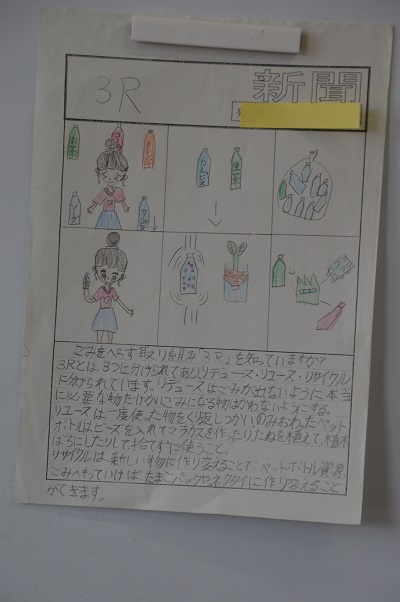 3R
新聞
お茶
生茶
ごみをへらす取り組み「3R」を知っていますか?
3Rとは、3つに分けられておりリデュース・リユース・リサイクル
に分けられています。リデュースはごみが出ないように本当
に必要な物だけかいごみになる物はかわないようにする。
リユースは一度使った物をくり返しつかいのみおわったペット
ボトルはビーズを入れてマラカスを作ったりたねを植えて植木
ばちにしたりして捨てずに使うこと。
リサイクルは、新しい物に作り変えることで、ペットボトル資源
ごみへもっていけば、たまごパックやネクタイに作り変えること
ができます。